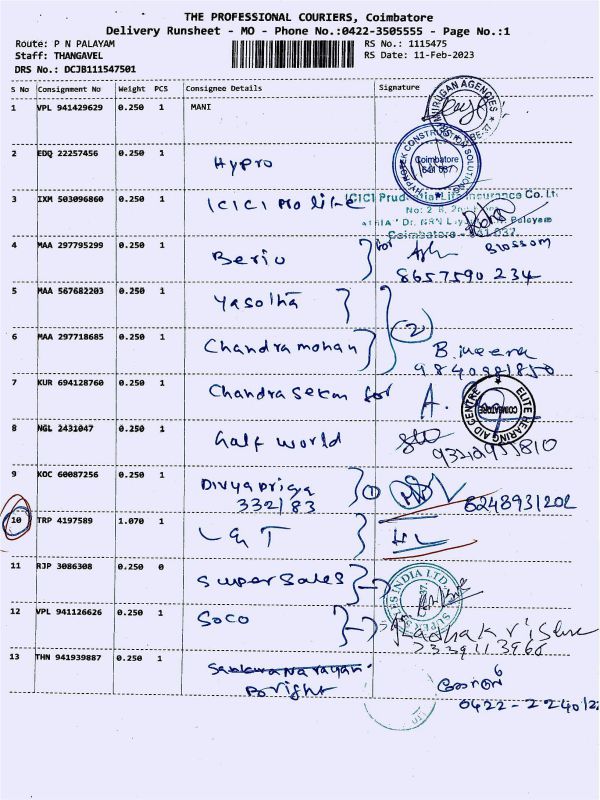 THE PROFESSIONAL COURIERS, Coimbatore
Delivery Runsheet - MO - Phone No.:0422-3505555 - Page No.:1
Route: P N PALAYAM
RS No.: 1115475
Staff: THANGAVEL
RS Date: 11-Feb-2023
DRS No.: DCJB111547501
S No Consignment No Weight PCS Consignee Details Signature
1 VPL 941429629 0.250 1 MANI
MURUGAN AGENCIES
2 EDQ 22257456 0.250 1 Hypro
HYPROTEK CONSTRUCTION SOLUTIONS
Coimbatore
641 037
3 IXM 503096860 0.250 1 ICICI Pro life
ICICI Prudential Life Insurance Co. Lt
Coimbatore - 641 037.
4 MAA 297795299 0.250 1 for Blossom
8657590 234
5 MAA 567682203 0.250 1 Yasotha
(2)
6 MAA 297718685 0.250 1 Chandra mohan B. meena
9840981850
7 KUR 694128760 0.250 1 Chandra Sekar for A.
ELITE HEARING AID CENTRE
COIMBATORE
8 NGL 2431047 0.250 1 half world
9 KOC 60087256 0.250 1 Divyapriya 1
332/83 8248931202
10 TRP 4197589 1.070 1 L G T
11 RJP 3086308 0.250 0 Super Sales
SUPER SALES INDIA LTD.
12 VPL 941126626 0.250 1 Soco
13 THN 941939887 0.250 1
Bright